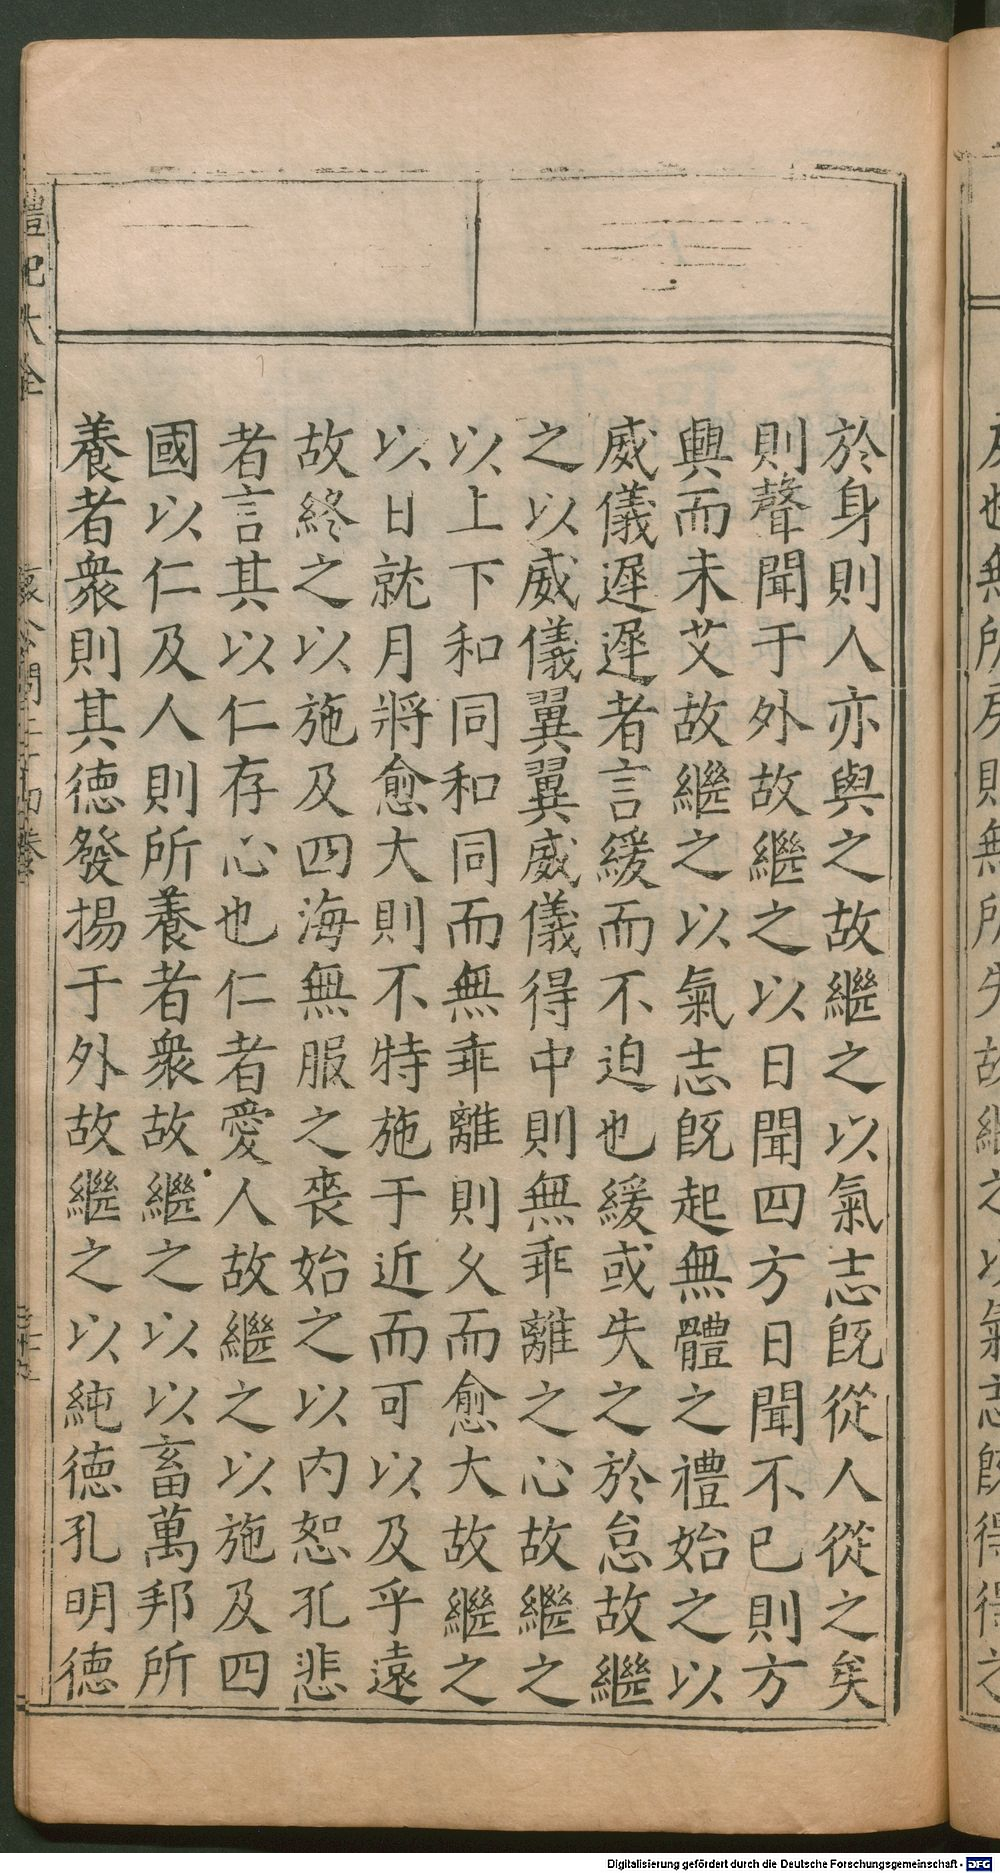 於身則人亦與之故繼之以氣志旣從人從之矣
則聲聞于外故繼之以日聞四方日聞不已則方
興而未艾故繼之以氣志旣起無體之禮始之以
威儀遲遲者言緩而不迫也緩或失之於怠故繼
之以威儀翼翼威儀得中則無乖離之心故繼之
以上下和同和同而無乖離則久而愈大故繼之
以日就月將愈大則不特施于近而可以及乎遠
故終之以施及四海無服之喪始之以内恕孔悲
者言其以仁存心也仁者愛人故繼之以施及四
國以仁及人則所養者衆故繼之以以畜萬邦所
養者衆則其徳發揚于外故繼之以純徳孔明徳
禮記大全
Digitalisierung gefördert durch die Deutsche Forschungsgemeinschaft - DFG